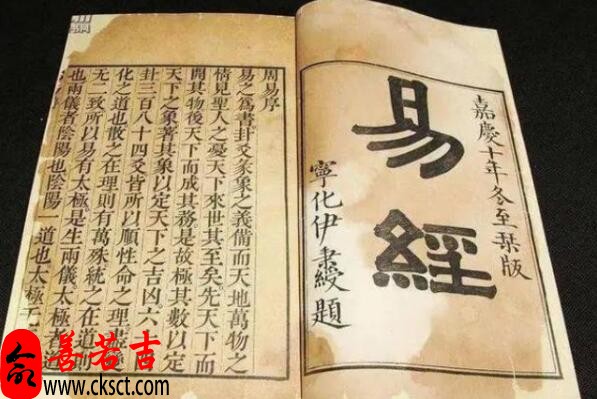 嘉慶十年冬至栞版
易經
寧化伊秉綬題
周易序
易之爲書卦爻彖象之義備而天地萬物之
情見聖人之憂天下來世其至矣先天下而
開其物後天下而成其務是故極其數以定
天下之象著其象以定天下之吉凶六十
卦三百八十四爻皆所以順性命之理盡
化之道也散之在理則有萬殊統之在道則
无二致所以易有太極是生兩儀太極者道
也兩儀者陰陽也陰陽一道也太極无
善若吉
www.cksct.com